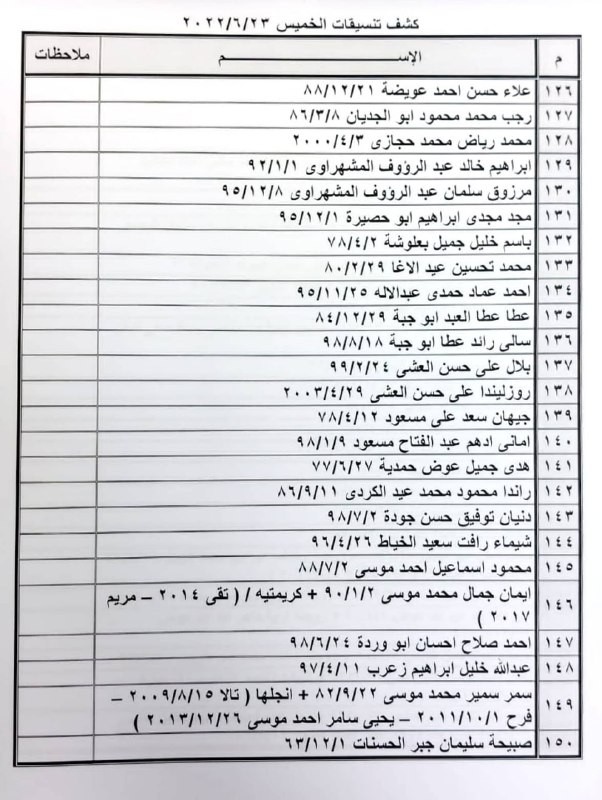 كشف تنسيقات الخميس ٢٠٢٢/٦/٢٣
م الإســـــم ملاحظات
١٢٦ علاء حسن احمد عويضة ٨٨/١٢/٢١
١٢٧ رجب محمد محمود ابو الجديان ٨٦/٣/٨
١٢٨ محمد رياض محمد حجازى ٢٠٠٠/٤/٣
١٢٩ ابراهيم خالد عبد الرؤوف المشهراوى ٩٢/١/١
١٣٠ مرزوق سلمان عبد الرؤوف المشهراوى ٩٥/١٢/٨
١٣١ مجد مجدى ابراهيم ابو حصيرة ٩٥/١٢/١
١٣٢ باسم خليل جميل بعلوشة ٧٨/٤/٢
١٣٣ محمد تحسين عيد الاغا ٨٠/٢/٢٩
١٣٤ احمد عماد حمدى عبدالاله ٩٥/١١/٢٥
١٣٥ عطا عطا العبد ابو جبة ٨٤/١٢/٢٩
١٣٦ سالى رائد عطا ابو جبة ٩٨/٨/١٨
١٣٧ بلال على حسن العشى ٩٩/٢/٢٤
١٣٨ روزليندا على حسن العشى ٢٠٠٣/٤/٢٩
١٣٩ جيهان سعد على مسعود ٧٨/٤/١٢
١٤٠ امانى ادهم عبد الفتاح مسعود ٩٨/١/٩
١٤١ هدى جميل عوض حمدية ٧٧/٦/٢٧
١٤٢ راندا محمود محمد عيد الكردى ٨٦/٩/١١
١٤٣ دنيان توفيق حسن جودة ٩٨/٧/٢
١٤٤ شيماء رافت سعيد الخياط ٩٦/٤/٢٦
١٤٥ محمود اسماعيل احمد موسى ٨٨/٧/٢
١٤٦ ايمان جمال محمد موسى ٩٠/١/٢ + كريمتيه / ( تقى ٢٠١٤ – مريم
٢٠١٧ )
١٤٧ احمد صلاح احسان ابو وردة ٩٨/٦/٢٤
١٤٨ عبدالله خليل ابراهيم زعرب ٩٧/٤/١١
١٤٩ سمر سمير محمد موسى ٨٢/٩/٢٢ + انجلها ( تالا ٢٠٠٩/٨/١٥ –
فرح ٢٠١١/١٠/١ – يحيى سامر احمد موسى ٢٠١٣/١٢/٢٦ )
١٥٠ صبيحة سليمان جبر الحسنات ٦٣/١٢/١